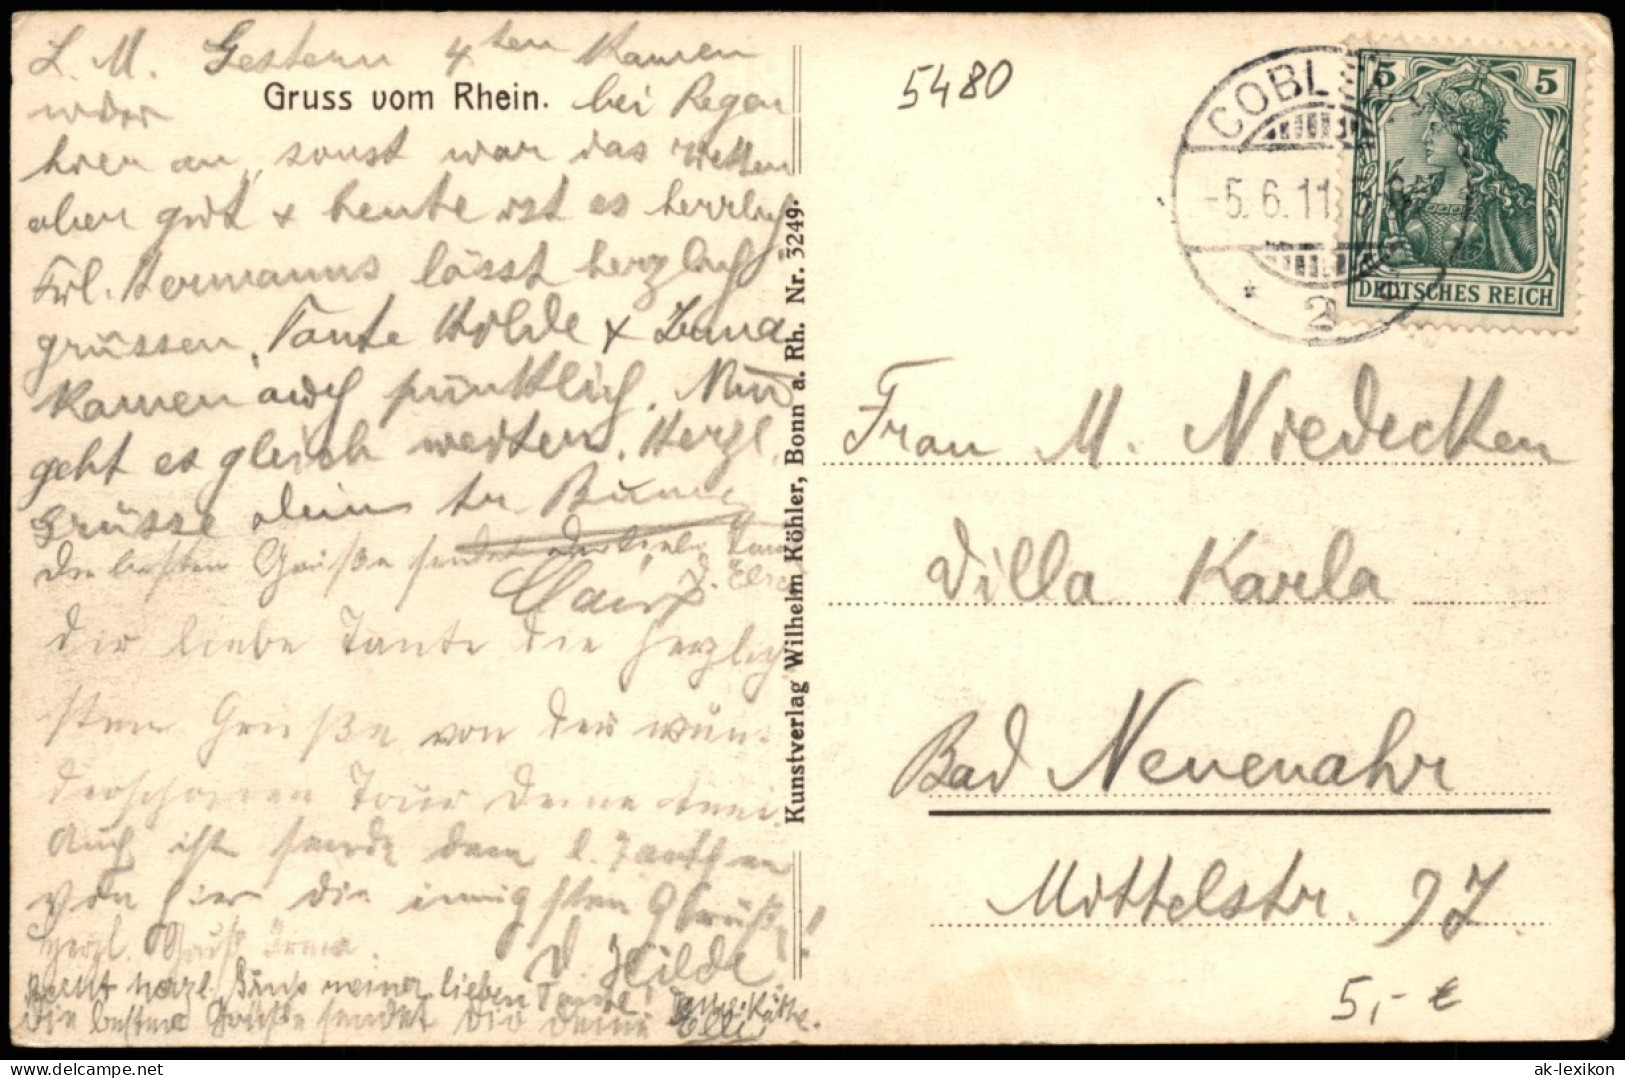 L. M. Gestern 4ten kamen
wir
Gruss vom Rhein.
bei Regen
hier an, sonst war das Wetter
aber gut + heute ist es herrlich
Frl. Hermanns lässt herzlich
grüssen, Tante Hilde + Irma
kamen auch pünktlich. Nun
geht es gleich weiter. Herzl.
Grüsse deine tr.
Die besten Grüße sendet
Claire
Dir liebe Tante die herzlich
sten Grüße von der wun-
derschönen Tour Deine
Auch ich sende dem l. Tantchen
von hier die innigsten Grüße!
herzl. Gruß Irma.
D. Hilde
Recht herzl. Gruß meiner lieben Tante! Käthe.
die besten Grüße sendet dir deine Elli
Kunstverlag Wilhelm Köhler, Bonn a. Rh. Nr. 3249.
5480
COBL
-5.6.11
2
5 5
DEUTSCHES REICH
Frau M. Niedecken
Villa Karla
Bad Neuenahr
Mittelstr. 97.
5,- €
ak-lexikon